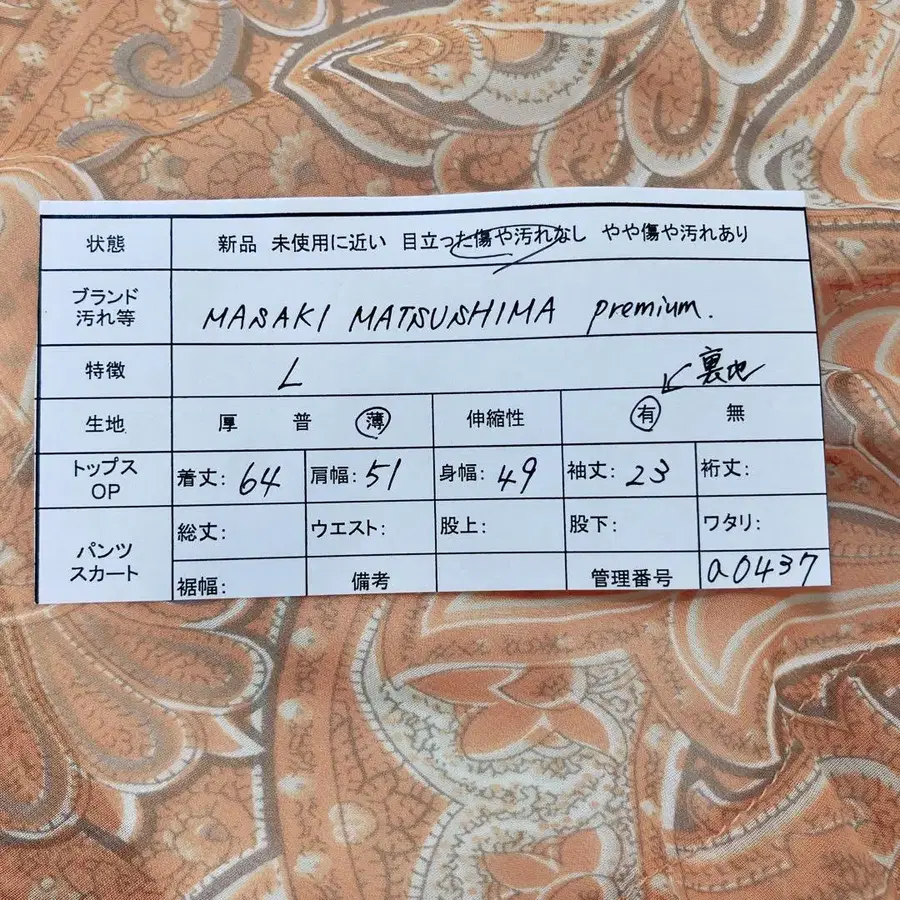 状態 新品 未使用に近い 目立った傷や汚れなし やや傷や汚れあり
ブランド
汚れ等
MASAKI MATSUSHIMA premium.
特徴 L 裏地
生地 厚 普 薄 伸縮性 有 無
トップス
OP
着丈: 64 肩幅: 51 身幅: 49 袖丈: 23 裄丈:
パンツ
スカート
総丈: ウエスト: 股上: 股下: ワタリ:
裾幅: 備考 管理番号 a0437